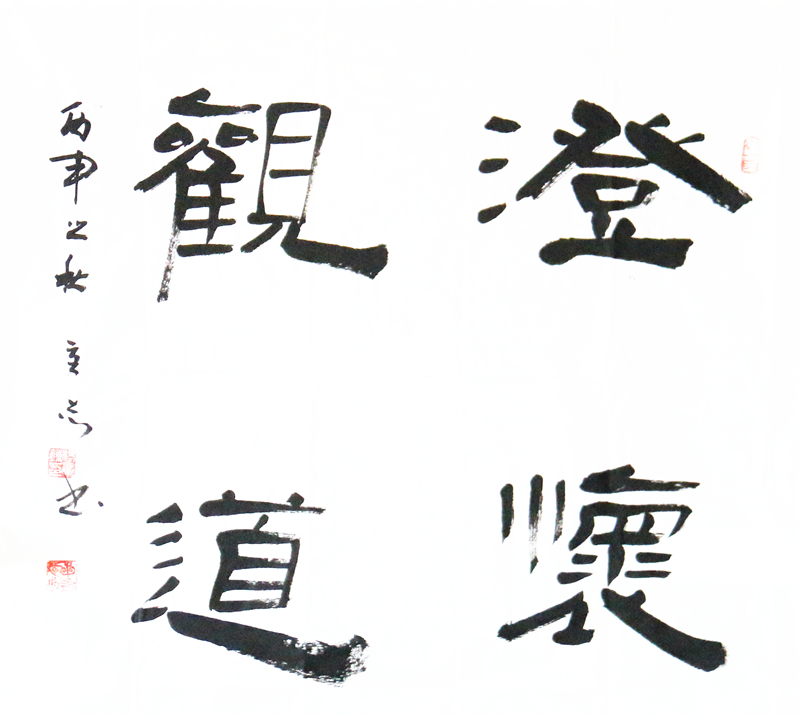 澄懷
觀道
丙申之秋
书